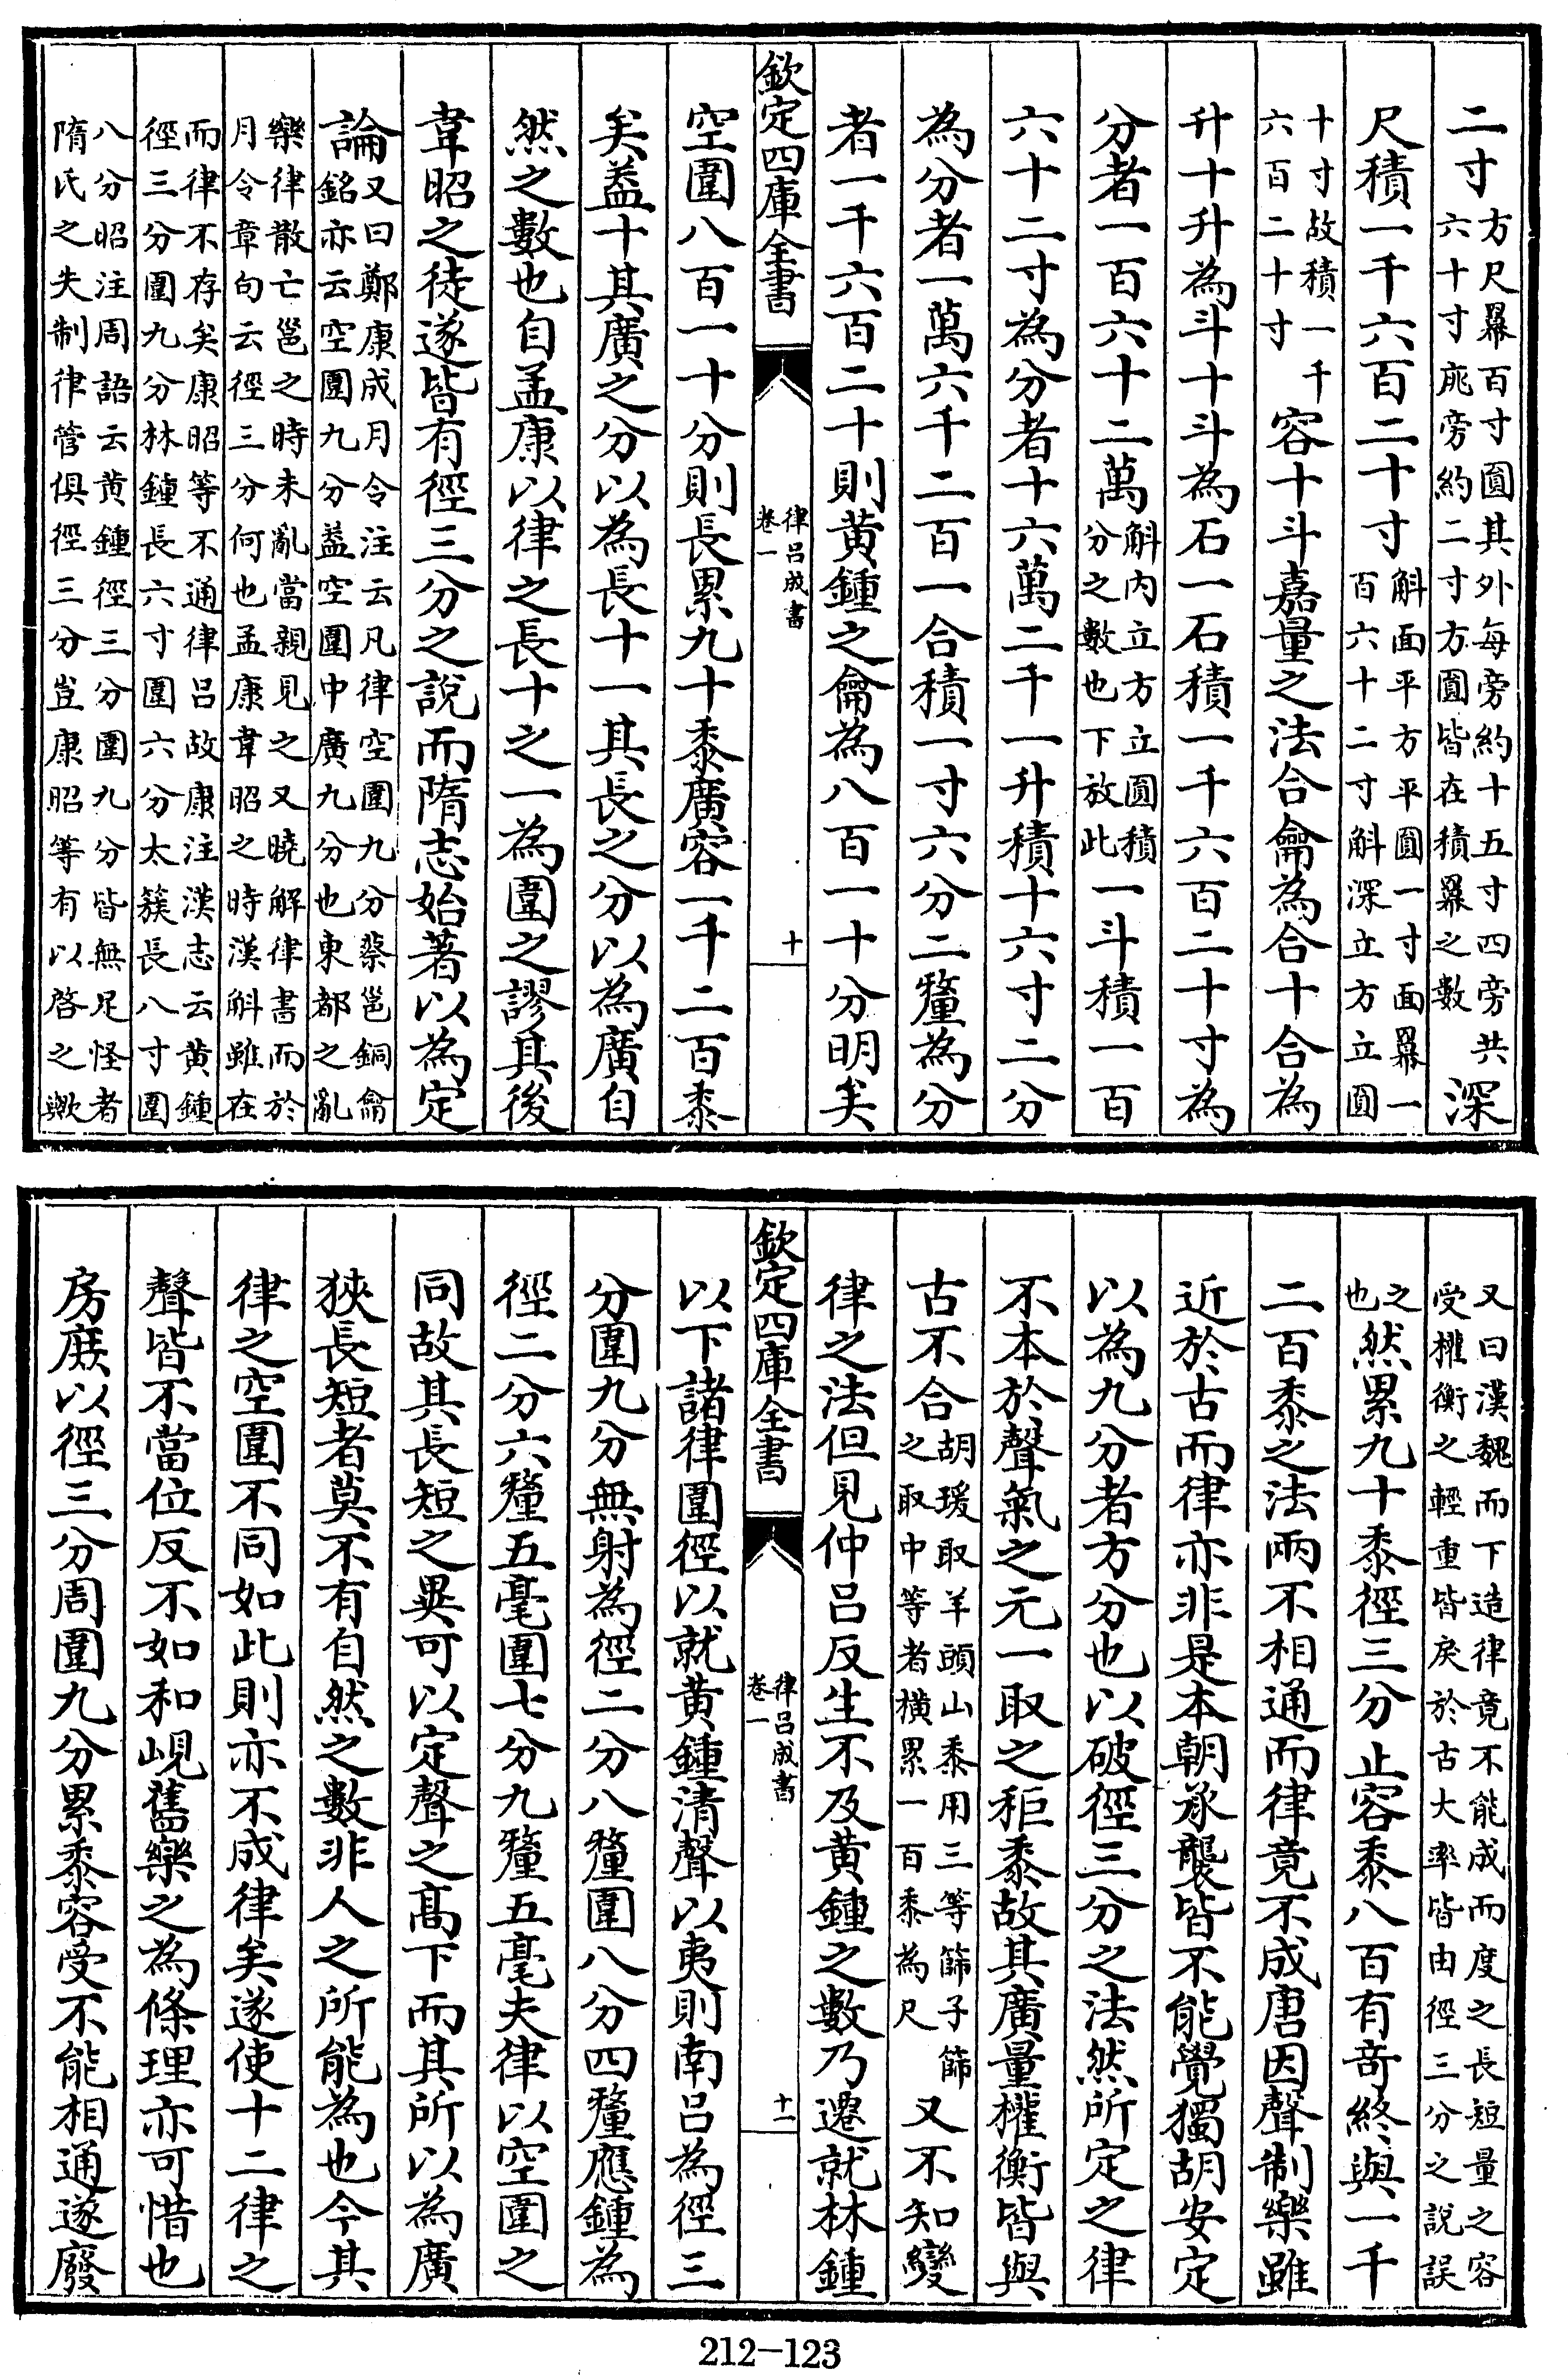 二寸方尺羃百寸圓其外每旁約十五寸四旁共
六十寸庣旁約二寸方圓皆在積羃之數深
尺積一千六百二十寸斛面平方平圓一寸面羃一
百六十二寸斛深立方立圓
十寸故積一千
六百二十寸容十斗嘉量之法合龠為合十合為
升十升為斗十斗為石一石積一千六百二十寸為
分者一百六十二萬斛内立方立圓積
分之數也下放此一斗積一百
六十二寸為分者十六萬二千一升積十六寸二分
為分者一萬六千二百一合積一寸六分二釐為分
者一千六百二十則黄鍾之龠為八百一十分明矣
欽定四庫全書
律吕成書
卷一
十
空圍八百一十分則長累九十黍廣容一千二百黍
矣葢十其廣之分以為長十一其長之分以為廣自
然之數也自孟康以律之長十之一為圍之謬其後
韋昭之徒遂皆有徑三分之說而隋志始著以為定
論又曰鄭康成月令注云凡律空圍九分蔡邕銅龠
銘亦云空圍九分葢空圍中廣九分也東都之亂
樂律散亡邕之時未亂當親見之又曉解律書而於
月令章句云徑三分何也孟康韋昭之時漢斛雖在
而律不存矣康昭等不通律吕故康注漢志云黄鍾
徑三分圍九分林鍾長六寸圍六分太簇長八寸圍
八分昭注周語云黄鍾徑三分圍九分皆無足怪者
隋氏之失制律管俱徑三分豈康昭等有以啓之歟
又曰漢魏而下造律竟不能成而度之長短量之容
受權衡之輕重皆戾於古大率皆由徑三分之說誤
之
也然累九十黍徑三分止容黍八百有竒終與一千
二百黍之法兩不相通而律竟不成唐因聲制樂雖
近於古而律亦非是本朝承襲皆不能覺獨胡安定
以為九分者方分也以破徑三分之法然所定之律
不本於聲氣之元一取之秬黍故其廣量權衡皆與
古不合胡瑗取羊頭山黍用三等篩子篩
之取中等者横累一百黍為尺又不知變
律之法但見仲吕反生不及黄鍾之數乃遷就林鍾
欽定四庫全書
律吕成書
卷一
十一
以下諸律圍徑以就黄鍾清聲以夷則南吕為徑三
分圍九分無射為徑二分八釐圍八分四釐應鍾為
徑二分六釐五毫圍七分九釐五毫夫律以空圍之
同故其長短之異可以定聲之髙下而其所以為廣
狹長短者莫不有自然之數非人之所能為也今其
律之空圍不同如此則亦不成律矣遂使十二律之
聲皆不當位反不如和峴舊樂之為條理亦可惜也
房庶以徑三分周圍九分累黍容受不能相通遂廢
212-123